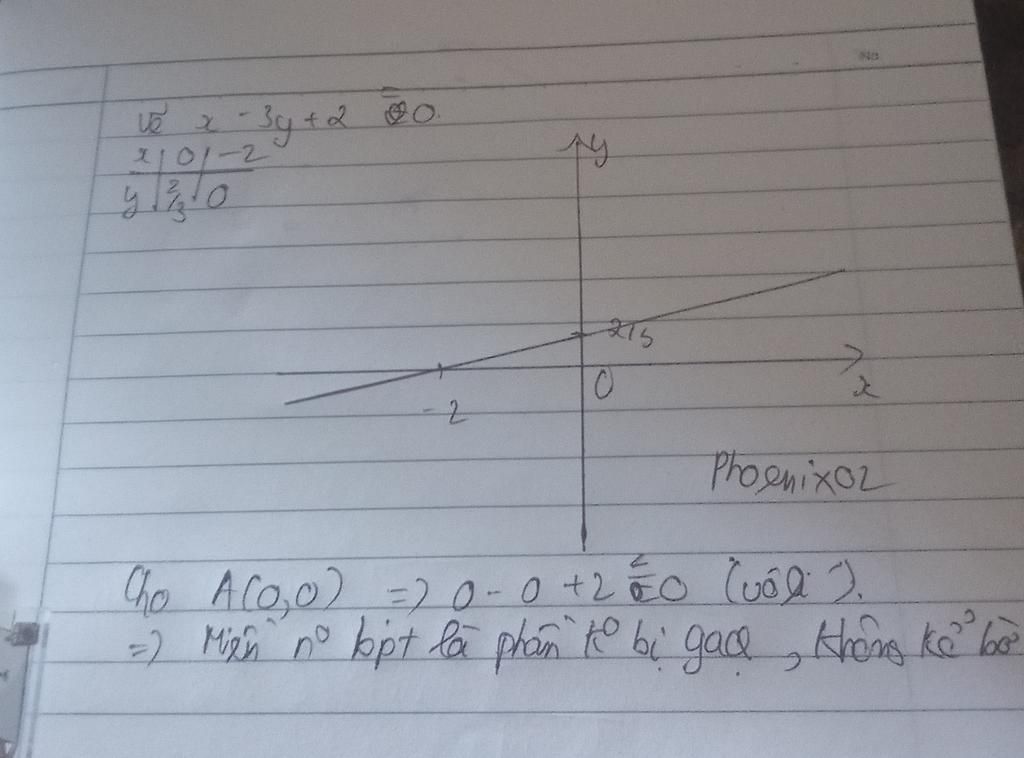 No
Vẽ x - 3y + 2 = 0.
x | 0 | -2
y | 2/3 | 0
y
2/3
-2
0
x
Phoenix02
Cho A(0,0) => 0 - 0 + 2 < 0 (vô lí).
=> Miền nº bpt là phần kº bị gạch, không kể bờ